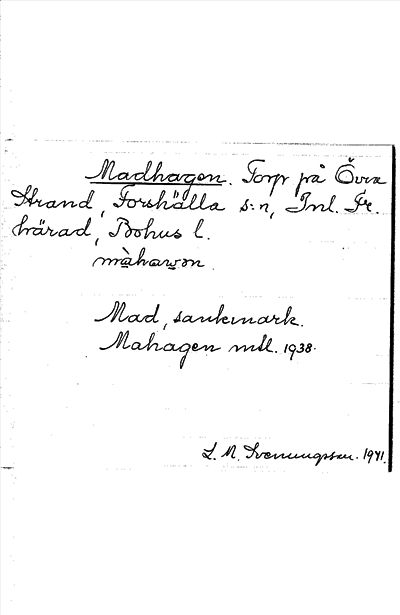 Madhagen. Torp på Övra
Strand, Forshälla s:n, Inl. Fr.
härad, Bohus l.
Mad, sankmark.
Mahagen mtl. 1938.
L. M. Svenungsson. 1941.